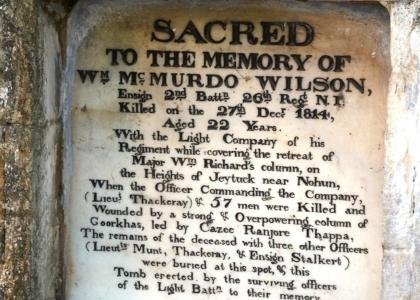 SACRED
TO THE MEMORY OF
Wᴹ. Mᶜ MURDO WILSON,
Ensign 2nd Battn. 26th Regt. N.I.
Killed on the 27th Decr. 1814,
Aged 22 Years.
With the Light Company of his
Regiment while covering the retreat of
Major Wm Richard's column, on
the Heights of Jeytuck near Nohun,
When the Officer Commanding the Company,
(Lieut Thackeray) & 57 men were Killed and
Wounded by a strong & Overpowering column of
Goorkhas, led by Cazee Ranjore Thappa,
The remains of the deceased with three other Officers
(Lieuts Munt, Thackeray, & Ensign Stalkert)
were buried at this spot, & this
Tomb erected by the surviving officers
of the Light Battn to their memory